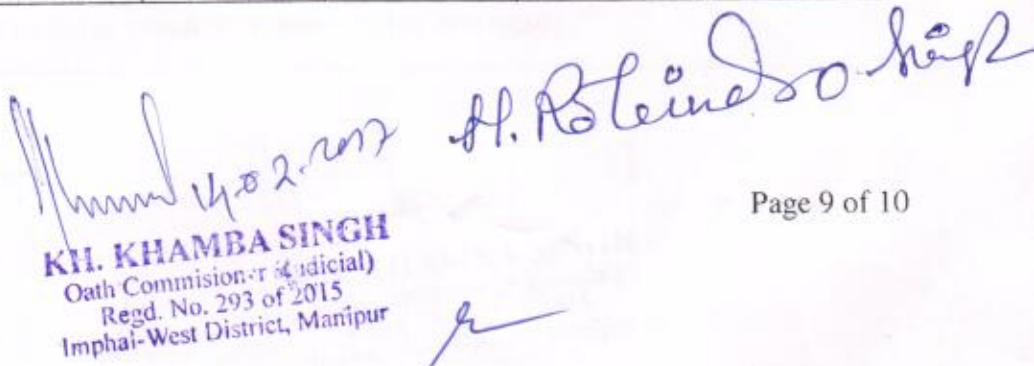 14.02.2017
H. Robindro Singh
Page 9 of 10
KH. KHAMBA SINGH
Oath Commisioner (Judicial)
Regd. No. 293 of 2015
Imphal-West District, Manipur